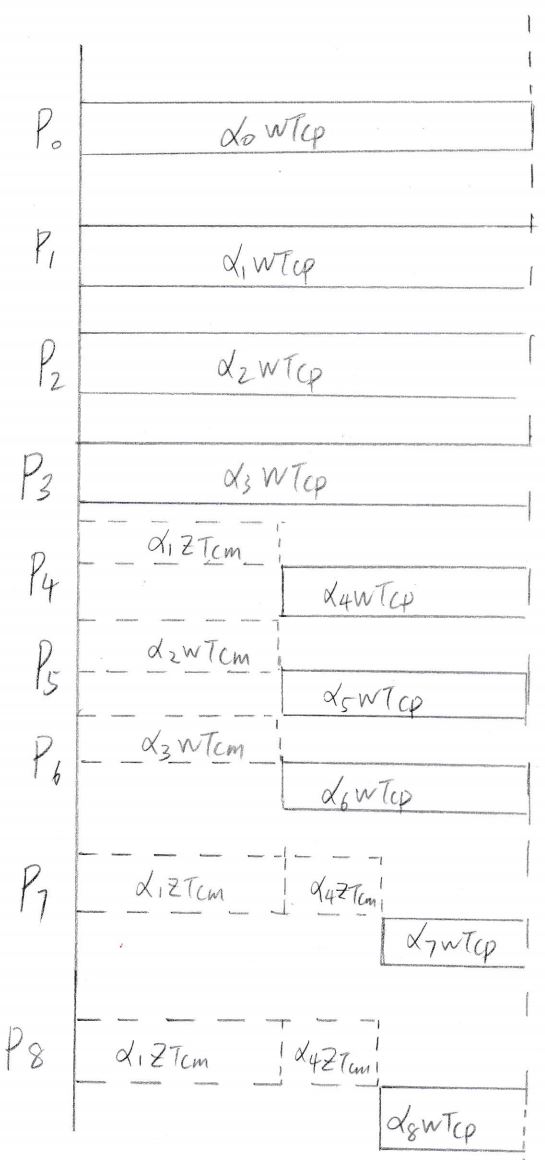 P₀ α₀wTcp
P₁ α₁wTcp
P₂ α₂wTcp
P₃ α₃wTcp
α₁zTcm
P₄ α₄wTcp
α₂wTcm
P₅ α₅wTcp
α₃wTcm
P₆ α₆wTcp
P₇ α₁zTcm α₄zTcm
α₇wTcp
P₈ α₁zTcm α₄zTcm
α₈wTcp